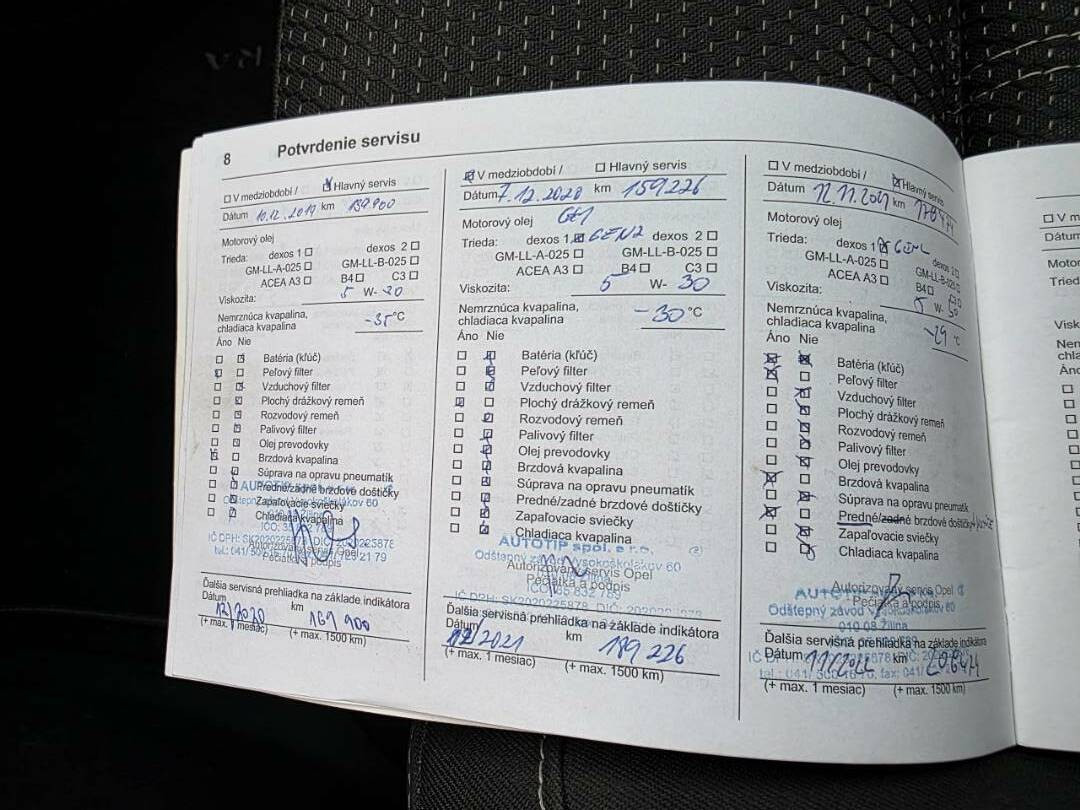 8 Potvrdenie servisu
V medziobdobí / Hlavný servis
Dátum 10.12.2019 km 139.900
Motorový olej
Trieda: dexos 1 dexos 2
GM-LL-A-025 GM-LL-B-025
ACEA A3 B4 C3
Viskozita: 5 W-30
Nemrznúca kvapalina,
chladiaca kvapalina -35 °C
Áno Nie
Batéria (kľúč)
Peľový filter
Vzduchový filter
Plochý drážkový remeň
Rozvodový remeň
Palivový filter
Olej prevodovky
Brzdová kvapalina
Súprava na opravu pneumatík
Predné/zadné brzdové doštičky
Zapaľovacie sviečky
Chladiaca kvapalina
Autorizovaný servis Opel
Pečiatka a podpis
Ďalšia servisná prehliadka na základe indikátora
Dátum km
12/2020 169 900
(+ max. 1 mesiac) (+ max. 1500 km)
V medziobdobí / Hlavný servis
Dátum 7.12.2020 km 159226
Motorový olej
Trieda: dexos 1 GEN2 dexos 2
GM-LL-A-025 GM-LL-B-025
ACEA A3 B4 C3
Viskozita: 5 W- 30
Nemrznúca kvapalina,
chladiaca kvapalina -30 °C
Áno Nie
Batéria (kľúč)
Peľový filter
Vzduchový filter
Plochý drážkový remeň
Rozvodový remeň
Palivový filter
Olej prevodovky
Brzdová kvapalina
Súprava na opravu pneumatík
Predné/zadné brzdové doštičky
Zapaľovacie sviečky
Chladiaca kvapalina
AUTOTIP spol. s r.o.
Odštepný závod Vysokoškolákov 60
Autorizovaný servis Opel
Pečiatka a podpis
Ďalšia servisná prehliadka na základe indikátora
Dátum km
12/2021 189 226
(+ max. 1 mesiac) (+ max. 1500 km)
V medziobdobí / Hlavný servis
Dátum 12.11.2021 km
Motorový olej
Trieda: dexos 1 dexos 2
GM-LL-A-025 GM-LL-B-025
ACEA A3 B4 C3
Viskozita: 5 W- 30
Nemrznúca kvapalina,
chladiaca kvapalina -29 °C
Áno Nie
Batéria (kľúč)
Peľový filter
Vzduchový filter
Plochý drážkový remeň
Rozvodový remeň
Palivový filter
Olej prevodovky
Brzdová kvapalina
Súprava na opravu pneumatík
Predné/zadné brzdové doštičky
Zapaľovacie sviečky
Chladiaca kvapalina
Autorizovaný servis Opel
Pečiatka a podpis
Odštepný závod Vysokoškolákov 60
010 08 Žilina
Ďalšia servisná prehliadka na základe indikátora
Dátum 11/2022 km
(+ max. 1 mesiac) (+ max. 1500 km)